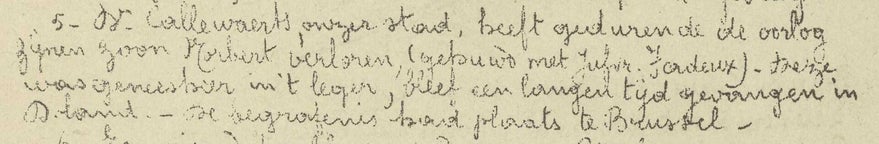 5- Dr. Callewaerts, onzer stad, heeft gedurende de oorlog
zijnen zoon Norbert verloren, (gehuwd met Jufvr. Jordeux) - Deze
was geneesheer in 't leger, bleef een langen tijd gevangen in
D.land. - De begrafenis had plaats te Brussel -